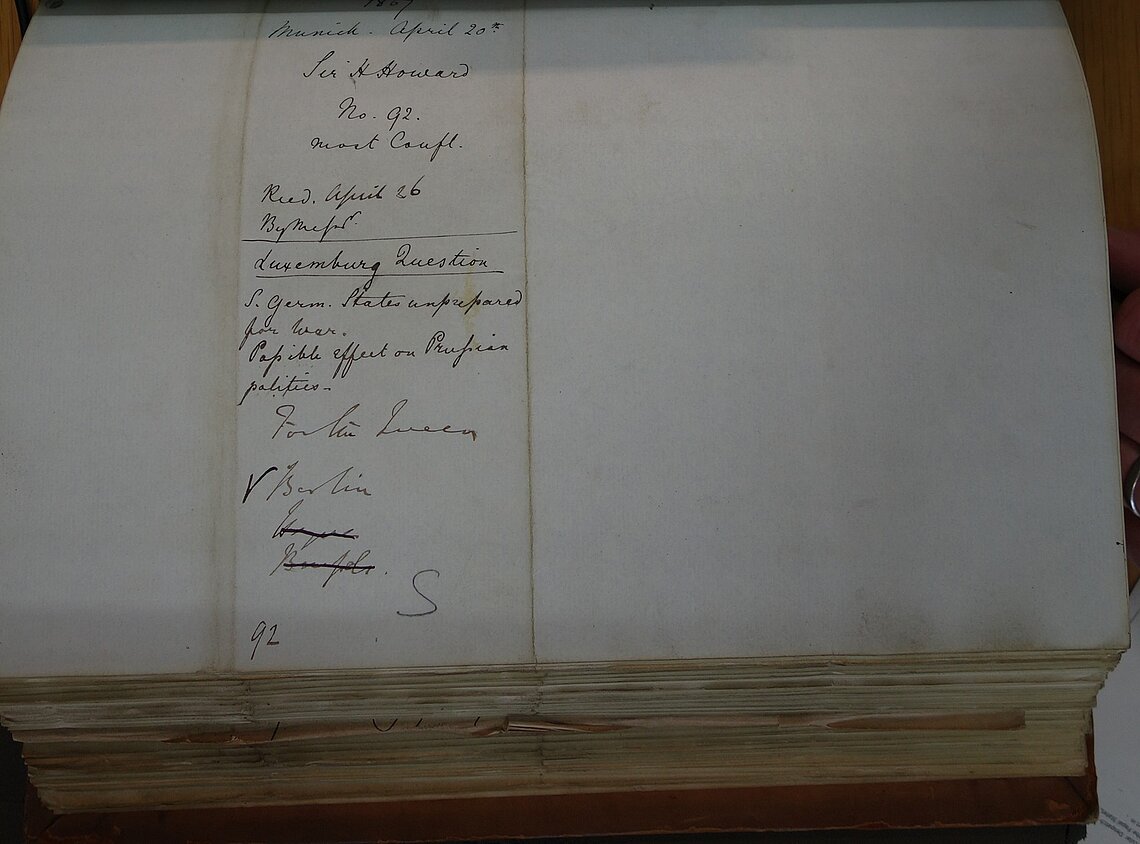 1867
Munich. April 20th.
Sir H Howard
No. 92.
most Confl.
Recd. April 26
By Messr.
Luxemburg Question
S. Germ. States unprepared
for War.
Possible effect on Prussian
politics-
For the Queen
Berlin
Brussels.
S
92